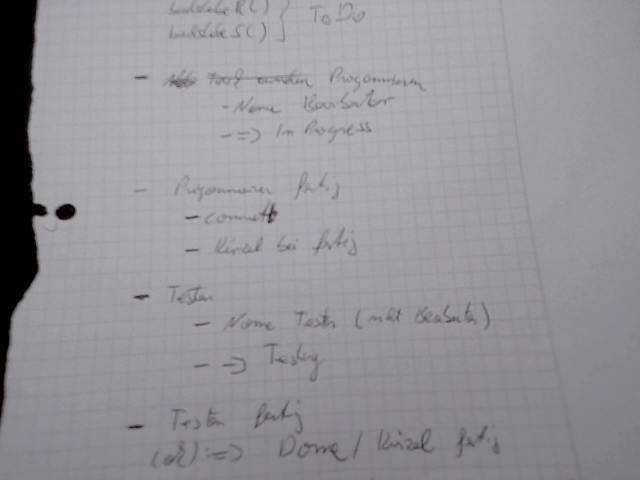 buchstabeR() } ToDo
buchstabeS()
- Programmieren
- Name Bearbeiter
- => In Progress
- Programmieren fertig
- commit
- Kürzel bei fertig
- Testen
- Name Tester (nicht Bearbeiter)
- => Testing
- Testen fertig
(ok) => Done / Kürzel fertig